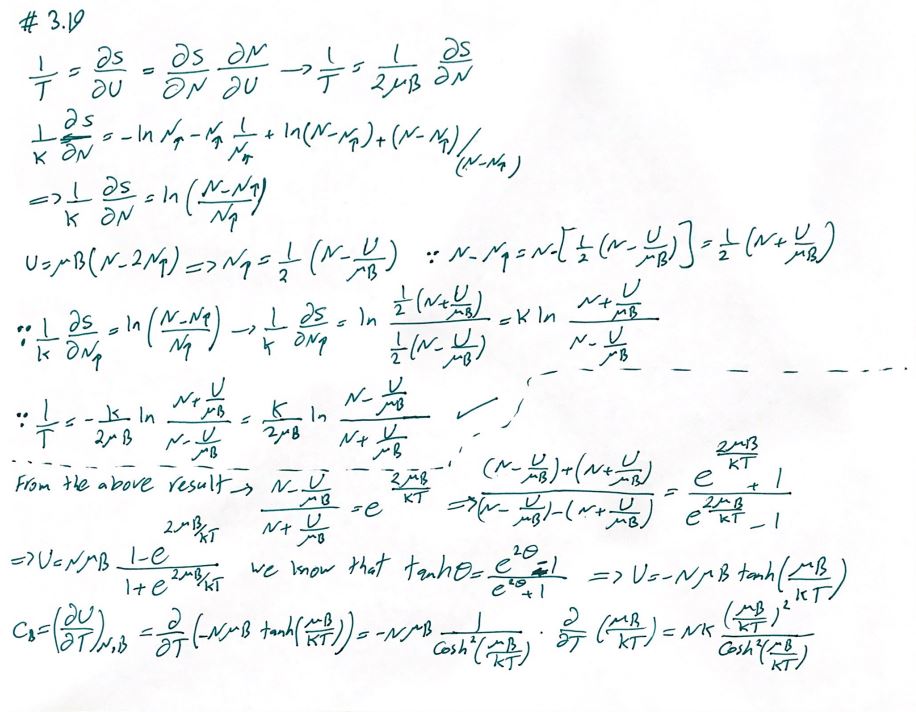 # 3.19
1/T = ∂S/∂U = ∂S/∂N ∂N/∂U → 1/T = 1/(2μB) ∂S/∂N
1/K ∂S/∂N = -ln N↑ - N↑ 1/N↑ + ln(N-N↑) + (N-N↑)/(N-N↑)
=> 1/K ∂S/∂N = ln((N-N↑)/N↑)
U=μB(N-2N↑) => N↑ = 1/2 (N - U/μB) ∵ N-N↑ = N-[1/2 (N - U/μB)] = 1/2 (N + U/μB)
∵ 1/K ∂S/∂N↑ = ln((N-N↑)/N↑) → 1/K ∂S/∂N↑ = ln (1/2 (N + U/μB))/(1/2 (N - U/μB)) = K ln (N + U/μB)/(N - U/μB)
∵ 1/T = -K/(2μB) ln (N + U/μB)/(N - U/μB) = K/(2μB) ln (N - U/μB)/(N + U/μB) ✓
From the above result → (N - U/μB)/(N + U/μB) = e^(2μB/KT) => ((N - U/μB)+(N + U/μB))/((N - U/μB)-(N + U/μB)) = (e^(2μB/KT) + 1)/(e^(2μB/KT) - 1)
=> U = NμB (1-e^(2μB/KT))/(1+e^(2μB/KT)) we know that tanhθ = (e^(2θ) - 1)/(e^(2θ) + 1) => U = -NμB tanh(μB/KT)
C_B = (∂U/∂T)_N,B = ∂/∂T (-NμB tanh(μB/KT)) = -NμB 1/Cosh²(μB/KT) · ∂/∂T (μB/KT) = NK (μB/KT)²/Cosh²(μB/KT)